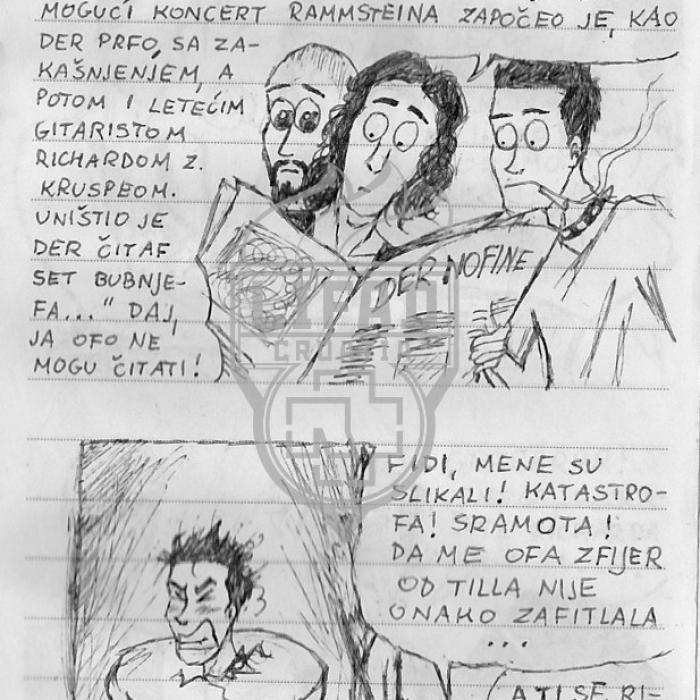 MOGUĆI KONCERT RAMMSTEINA ZAPOČEO JE, KAO
DER PRFO, SA ZA-
KAŠNJENJEM, A
POTOM I LETEĆIM
GITARISTOM
RICHARDOM Z.
KRUSPEOM.
UNIŠTIO JE
DER ČITAF
SET BUBNJE-
FA..." DAJ,
JA OFO NE
MOGU ČITATI!
DER NOFINE
LIFAD
CRO
FIDI, MENE SU
SLIKALI! KATASTRO-
FA! SRAMOTA!
DA ME OFA ZFIJER
OD TILLA NIJE
ONAKO ZAFITLALA
...